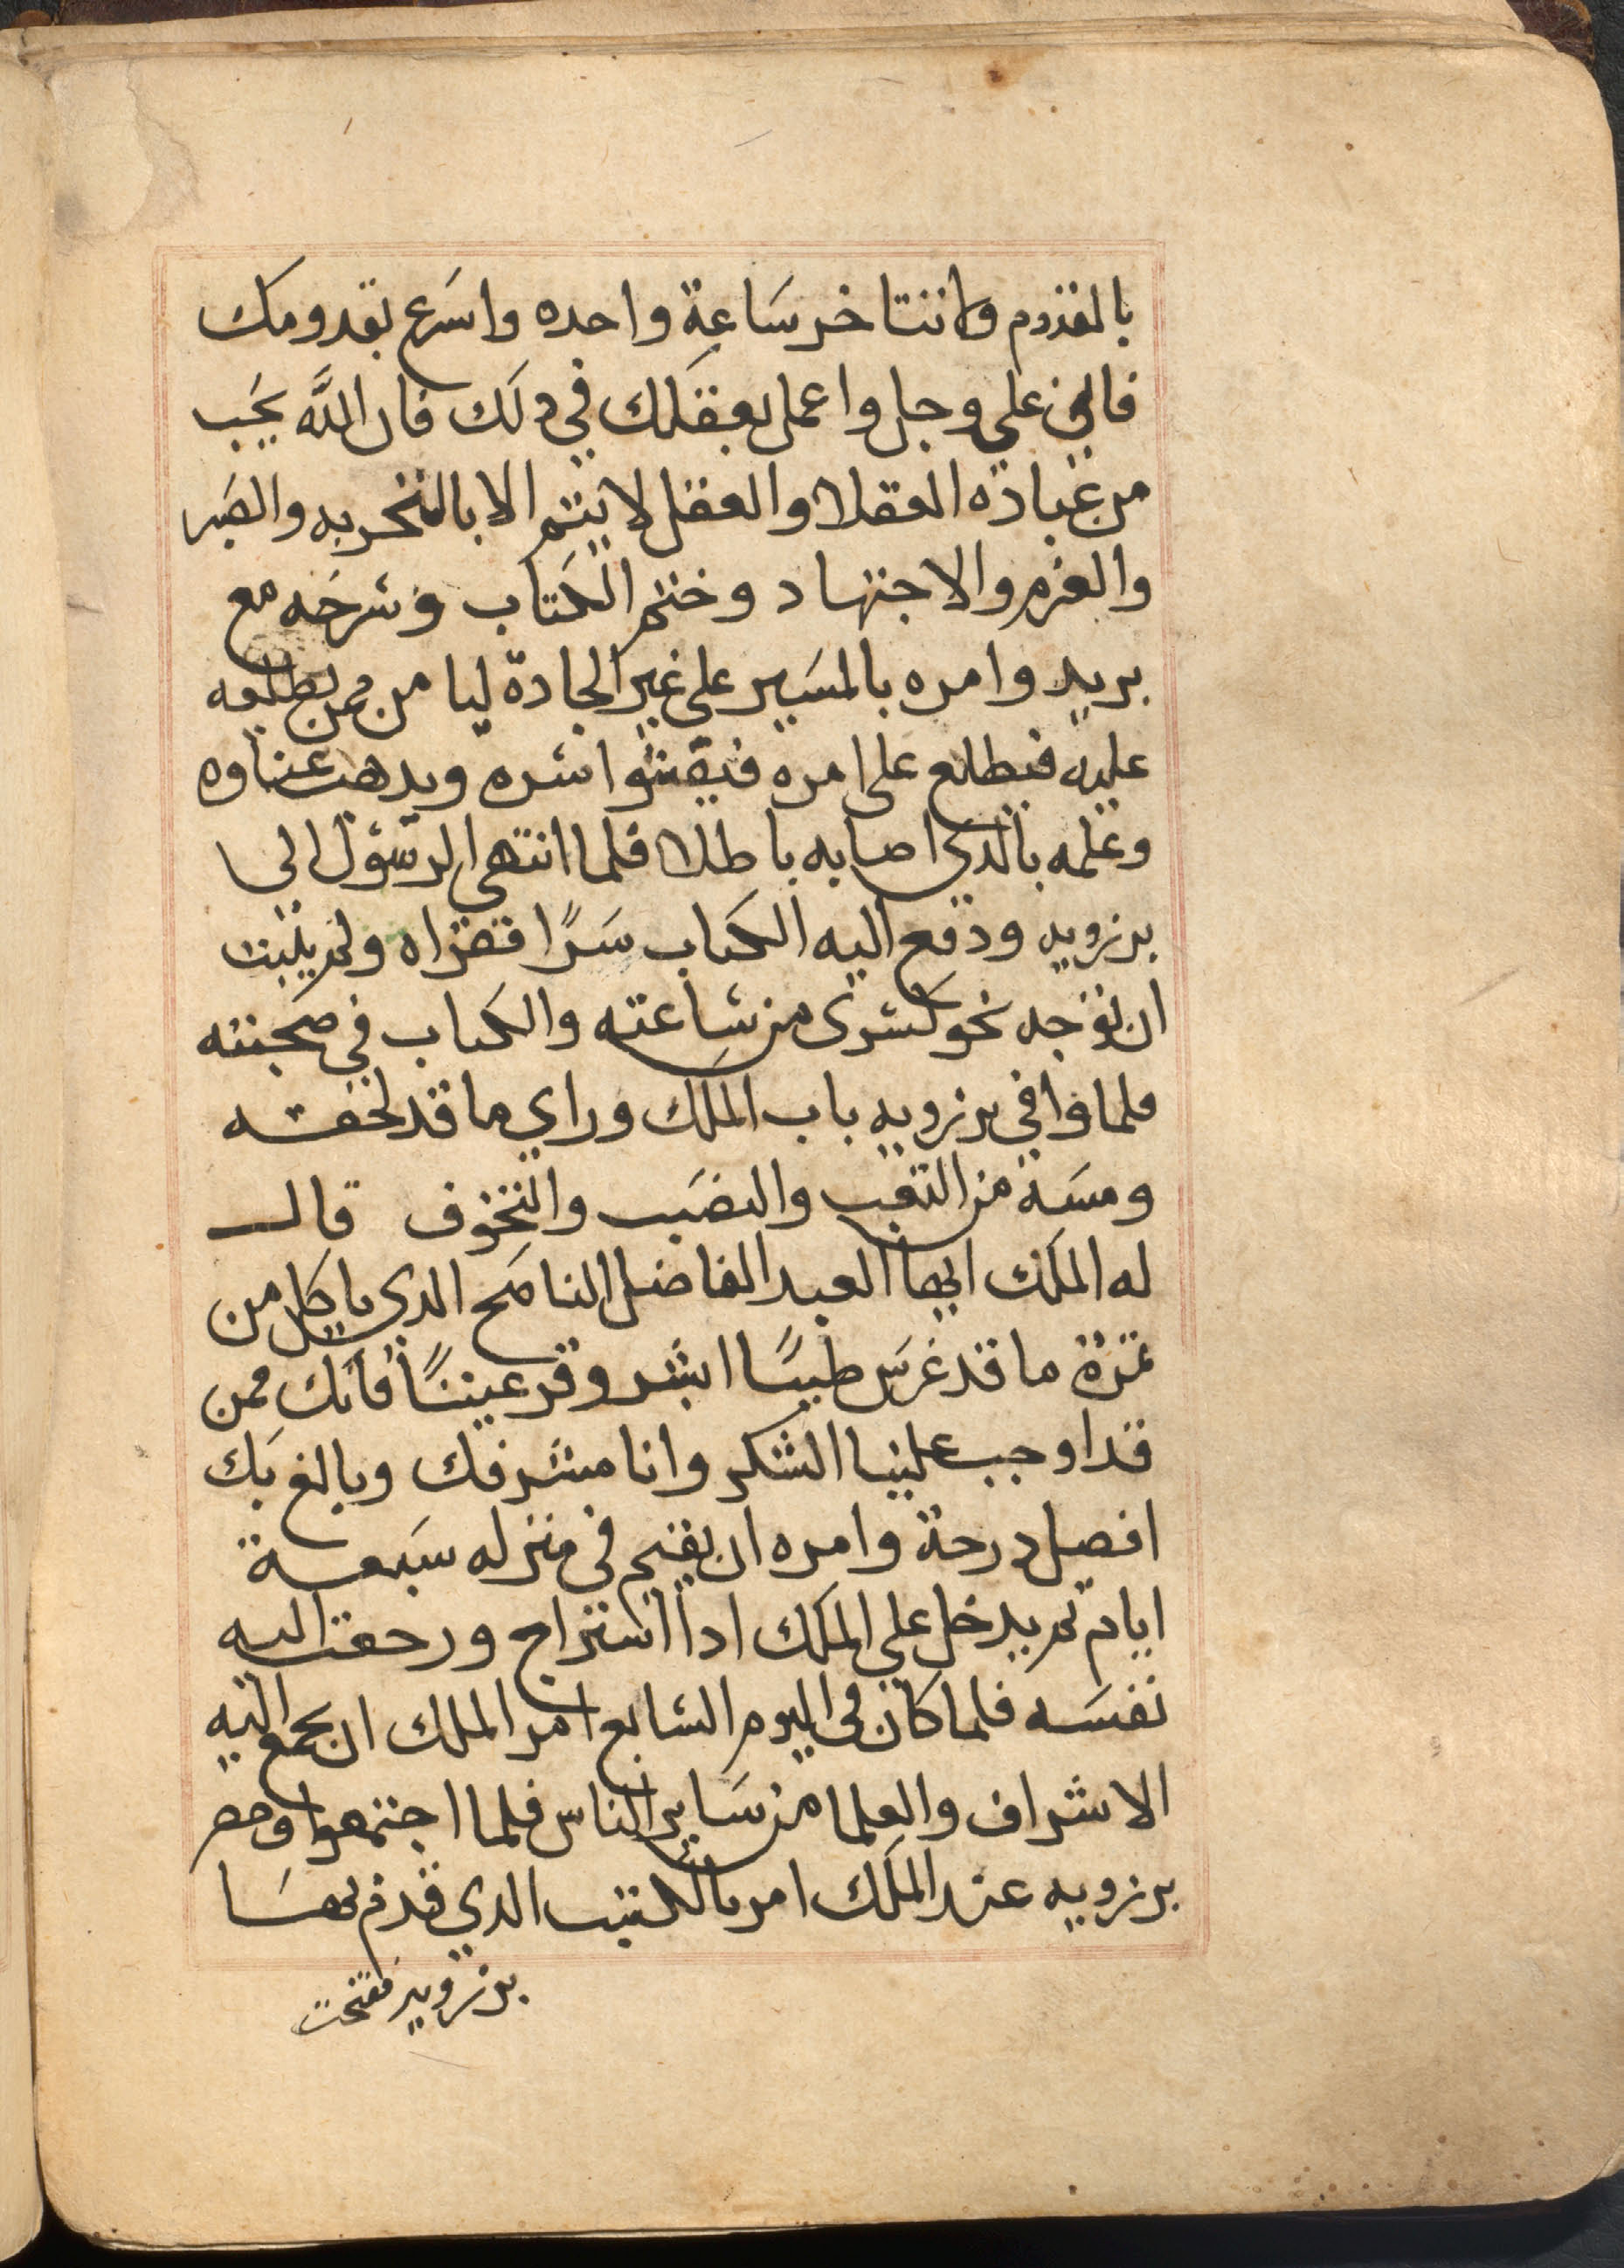 بالقدوم ولا تتاخر ساعة واحده واسرع بقدومك
فاني علي وجل واعمل بعقلك في دلك فان الله يحب
من عباده العقلا والعقل لا يتم الا بالتجربه والصبر
والعزم والاجتهاد وختم الكتاب وشرحه مع
بريد وامره بالمسير علي غير الجادة ليامن ممن يطلعه
عليه فيطلع على امره فيفشوا سره ويدهب عناوه
وعلمه بالدي اصابه باطلا فلما انتهي الرسول الي
برزويه ودفع اليه الكتاب سرًا فقراه ولم يلبث
ان توجه نحو كسرى من ساعته والكتاب في صحبته
فلما وافي برزويه باب الملك وراي ما قد لحقه
ومسه من التعب والنصب والتخوف قال
له الملك ايها العبد الفاضل الناصح الدي ياكل من
ثمرة ما قد غرس طيبًا ابشر وقر عينًا فانك ممن
قد اوجب علينا الشكر وانا مشرفك وبالغ بك
افضل درجة وامره ان يقيم في منزله سبعة
ايام ثم يدخل علي الملك ادا استراح ورجعت اليه
نفسه فلما كان في اليوم السابع امر الملك ان يجمع اليه
الاشراف والعلما من ساير الناس فلما اجتمعوا وحضر
برزويه عند الملك امر بالكتب الدي قدم بها
برزويه ففتحت